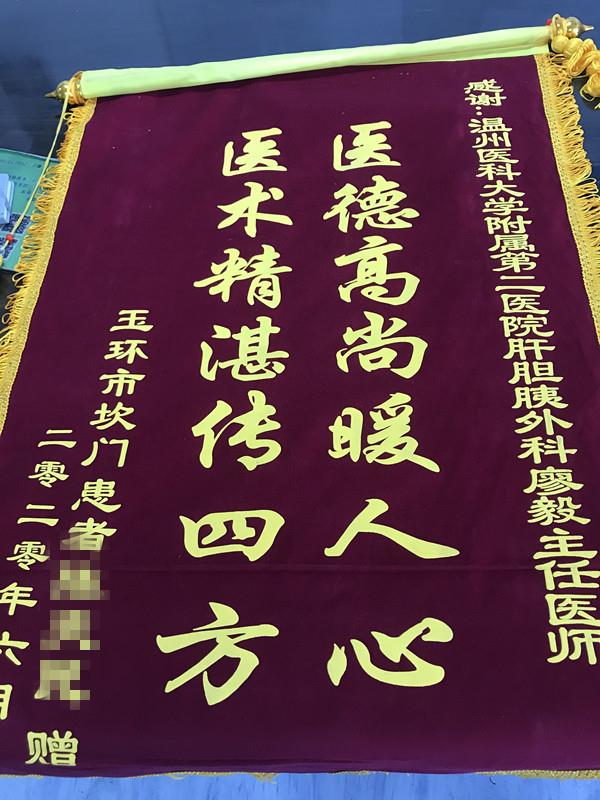 感谢:温州医科大学附属第二医院肝胆胰外科廖毅主任医师
医德高尚暖人心
医术精湛传四方
玉环市坎门患者
赠
二零二零年六月